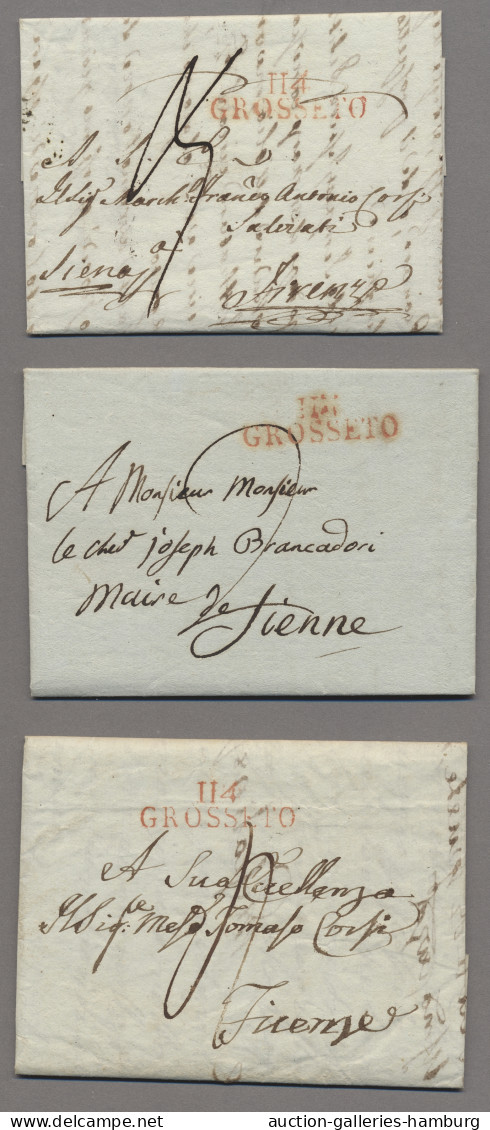 114
GROSSETO
Il Sig. March. Franco Antonio Corsi
Salviati
Siena
a
Firenze
114
GROSSETO
A Monsieur Monsieur
le chev. joseph Brancadori
Maire de Sienne
114
GROSSETO
A Sua Eccellenza
Il Sig.re Mese Tomaso Corsi
Firenze
delcampe.net
auction-galleries-hamburg